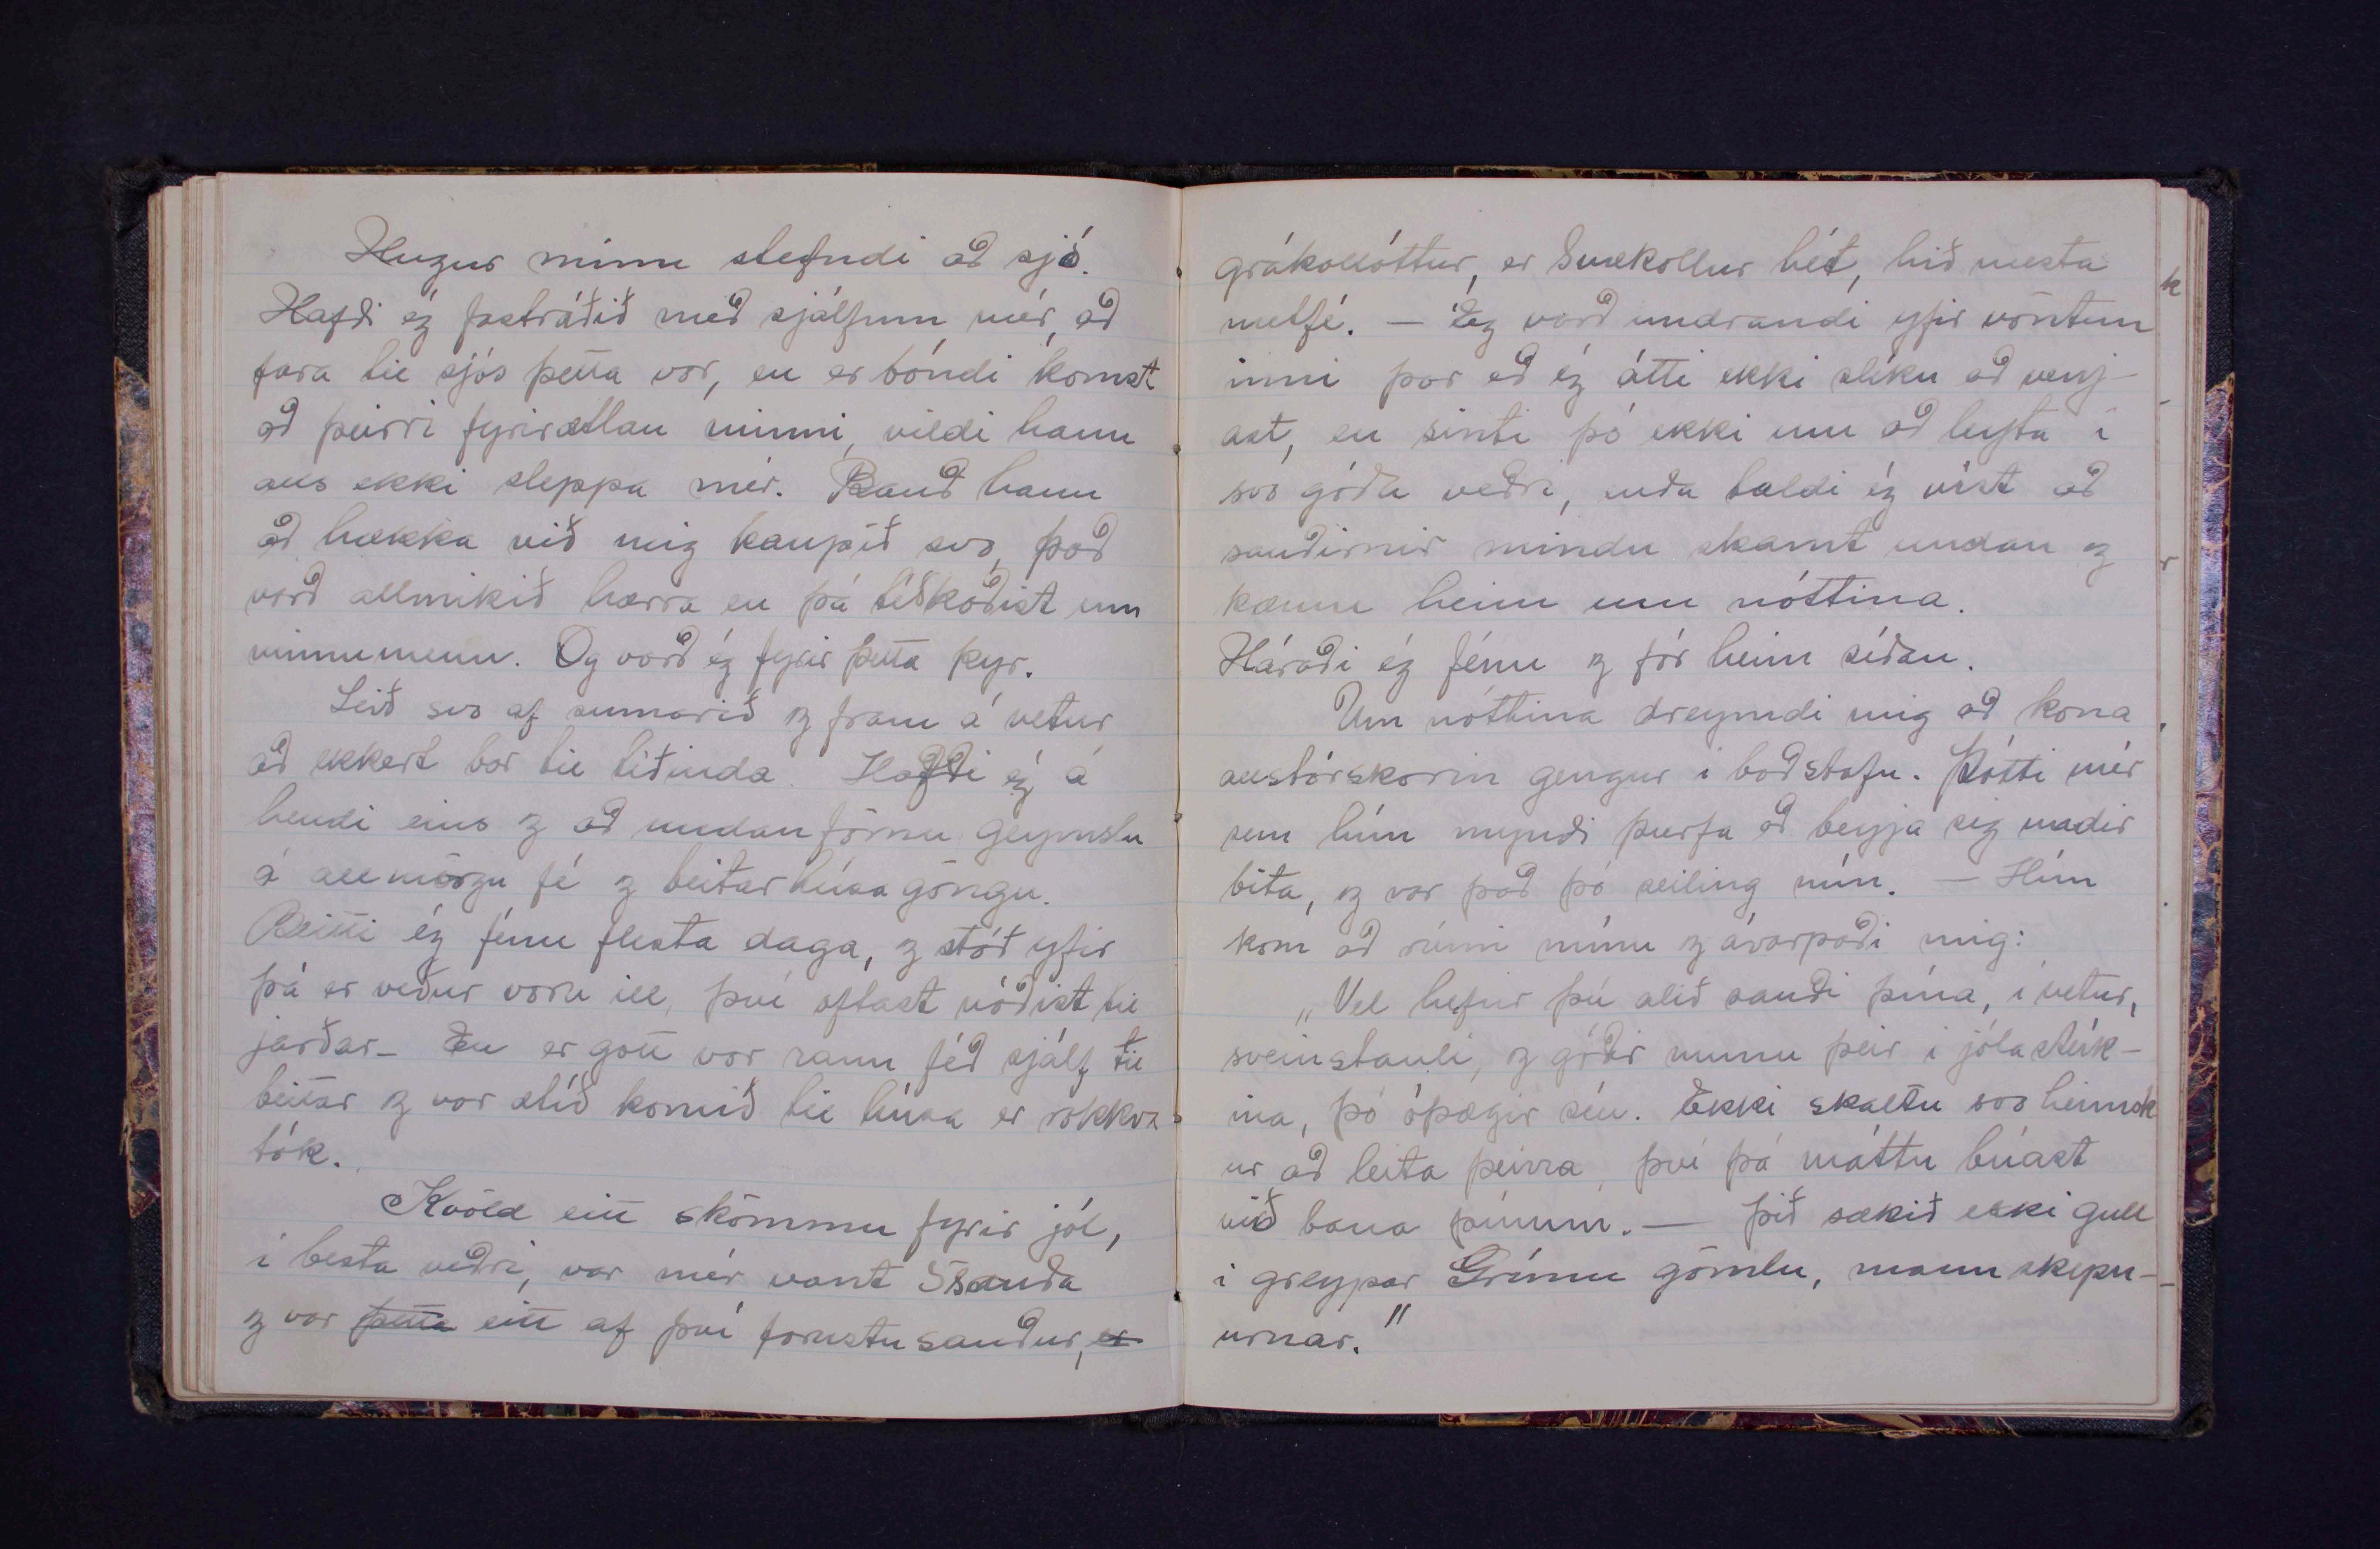 Hugur minn stefndi að sjó.
Hafði ég fastráðið með sjálfum mér, að
fara til sjós þetta vor, en er bóndi komst
að þeirri fyrirætlan minni, vildi hann
alls ekki sleppa mér. Bauð hann
að hækka við mig kaupið svo, það
varð allmikið hærra en þá tíðkaðist um
vinnumenn. Og varð ég fyrir þetta kyr.
Leið svo af sumarið og fram á vetur
að ekkert bar til tíðinda. Hafði ég á
hendi eins og að undanförnu geymslu
á allmörgu fé og beitarhúsagöngu.
Beitti ég fénu flesta daga, og stóð yfir
þá er veður voru ill, því oftast náðist til
jarðar- En er gott var rann féð sjálf til
beitar og var ætíð komið til húsa er rökkva
tók.
Kvöld eitt skömmu fyrir jól,
í besta veðri, var mér vant 5 sauða
og var þetta eitt af því forustusauður, er
grákollóttur, er Surekollur hét, hið mesta
metfé. — Ég varð undrandi yfir vöntun
inni þar eð ég átti ekki slíku að venj-
ast, en sinti þó ekki um að leyta í
svo góðu veðri, enda taldi ég víst að
sauðirnir mindu skamt undan og
kæmu heim um nóttina.
Hároði ég fénu og fór heim síðan.
Um nóttina dreymdi mig að kona
allstórskorin gengur í baðstofu. Þótti mér
sem hún myndi þurfa að beygja sig undir
bita, og var það þó seiling mín. — Hún
kom að rúmi mínu og ávarpaði mig:
„Vel hefur þú alið sauði þína, í vetur,
sveinstauli, og góðir munu þeir í jólasteik-
ina, þó óþægir séu. Ekki skaltu svo heimsk
ur að leita þeirra, því þá máttu búast
við bana þínum. — Þið sækið ekki gull
í greypar Grímu gömlu, mannskepn-
urnar."